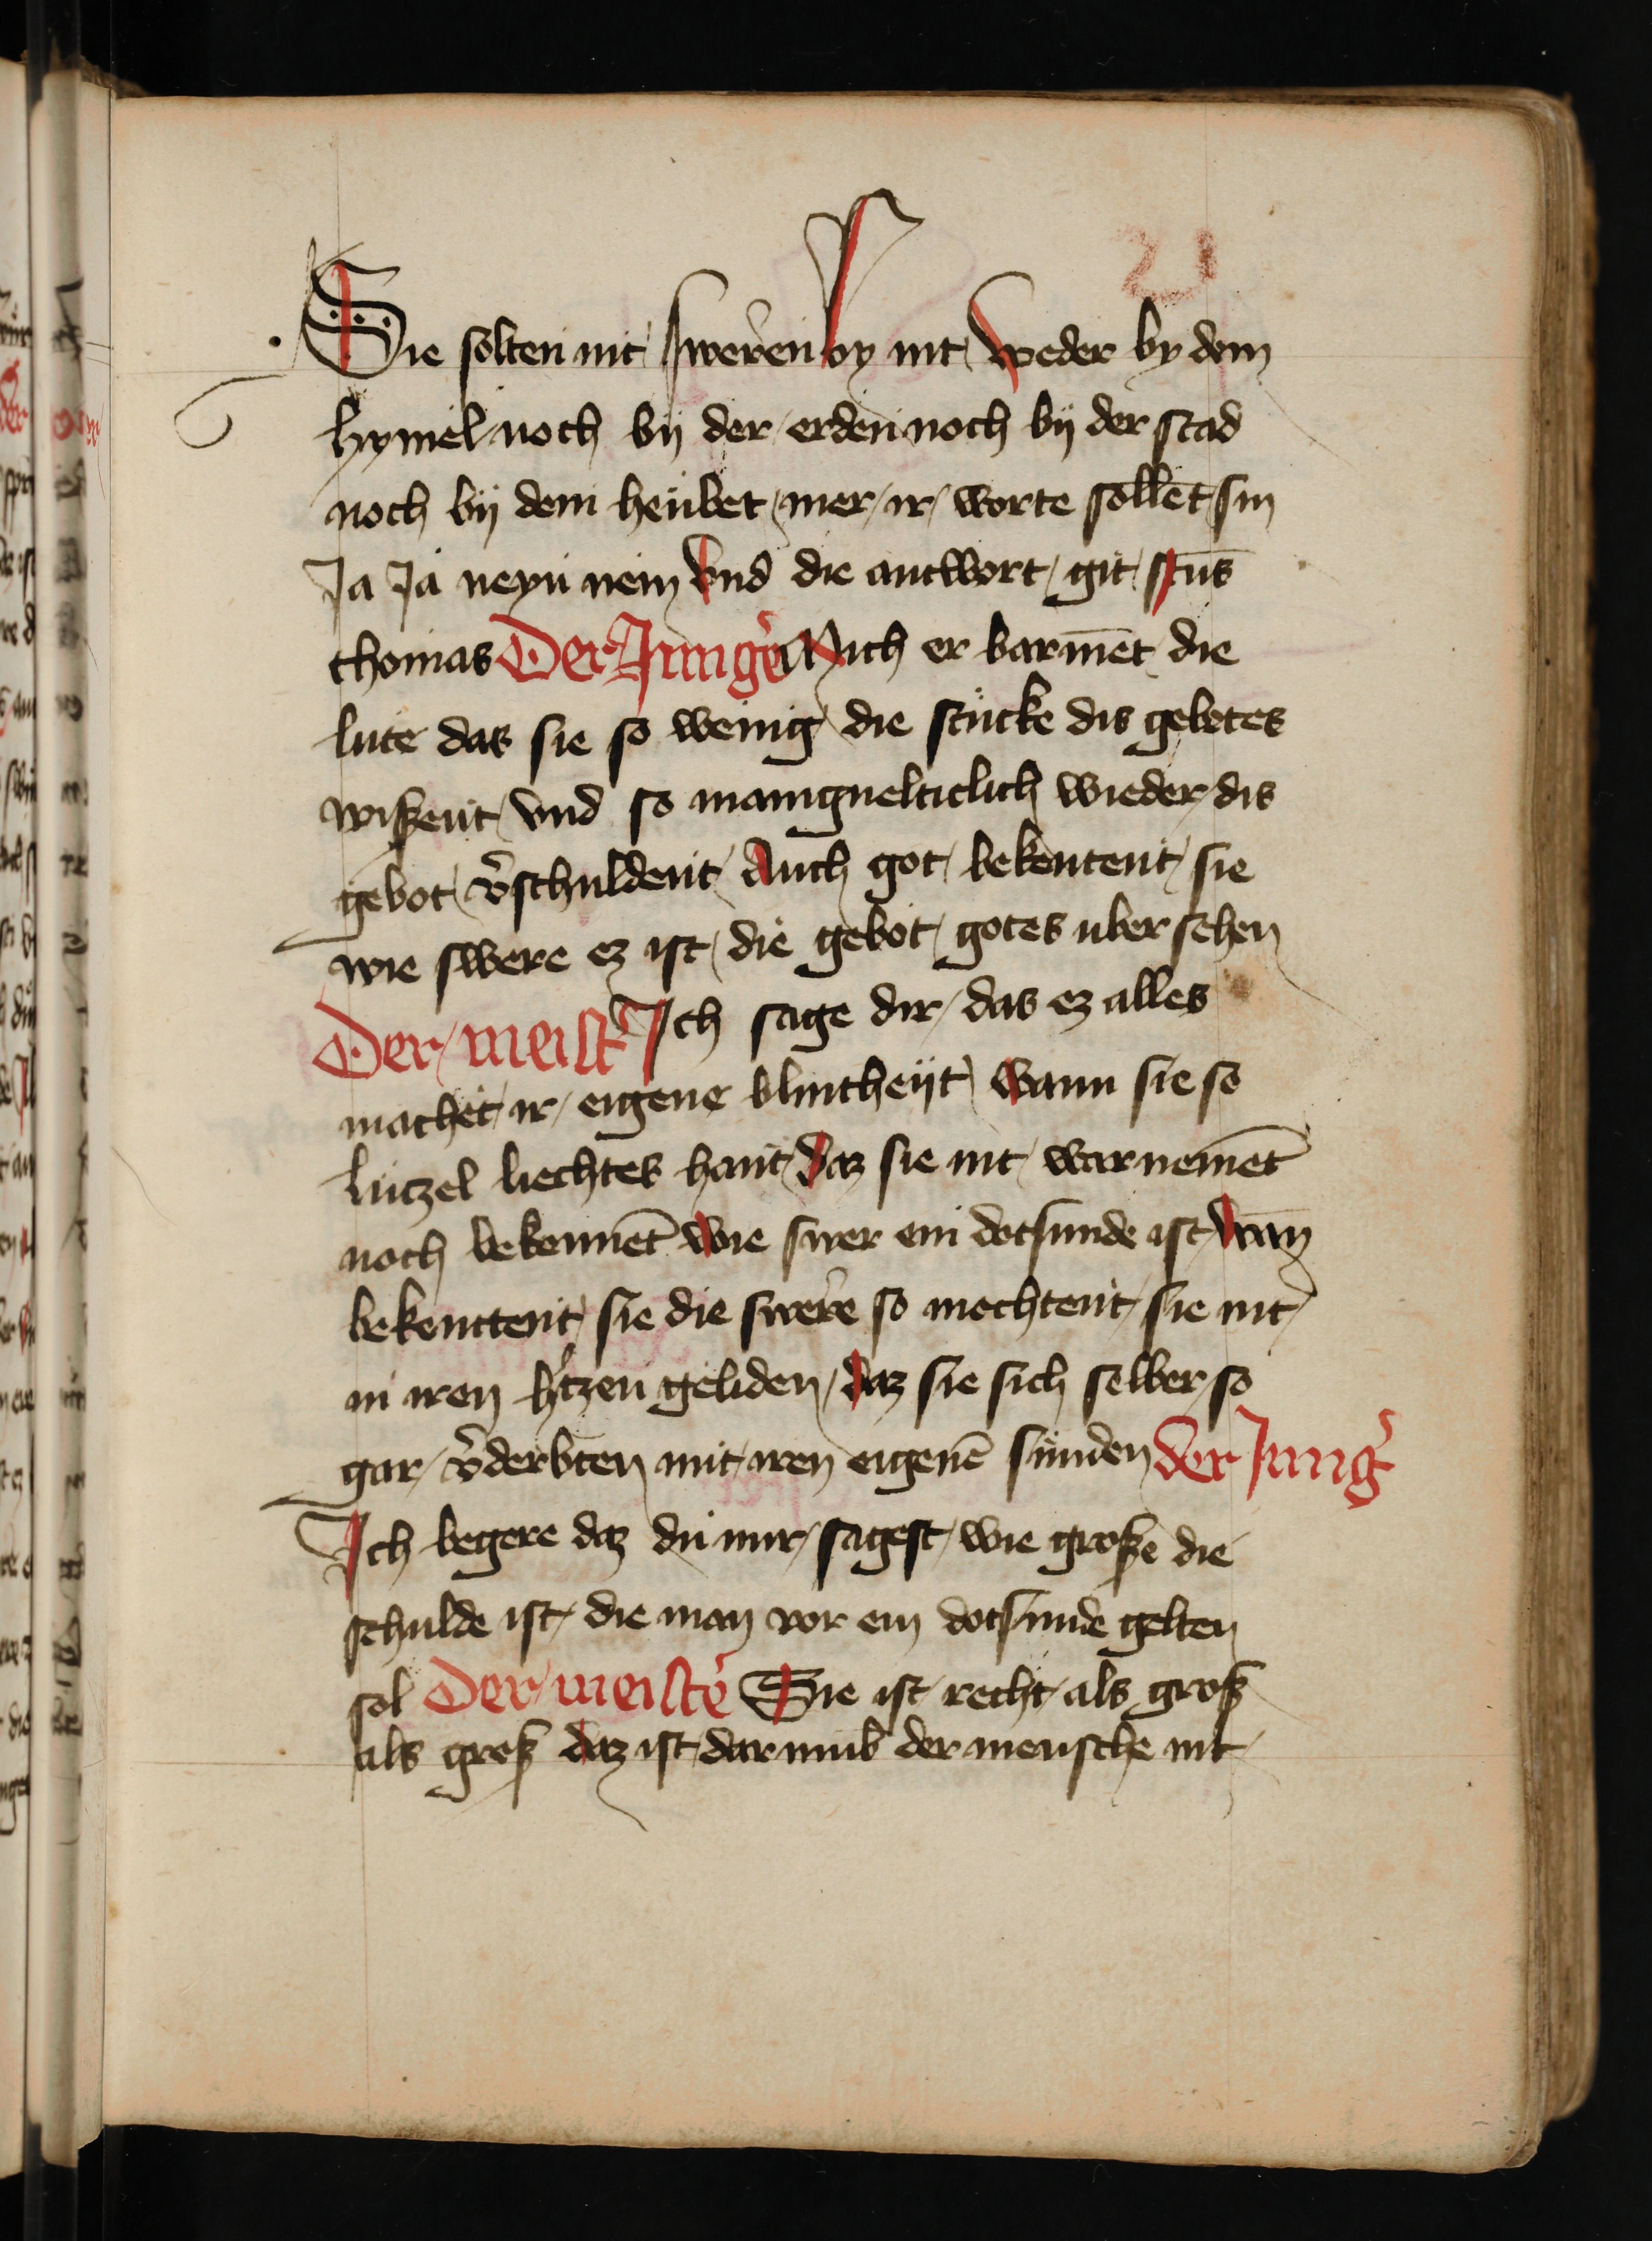 21
Sie solten nit sweren by nit weder by dem
hymel noch bij der erden noch bij der stad
noch bij dem heubet mer ir worte sollēt sin
Ja Ja neyn nein vnd die antwort git sctūs
thomas Der Junger Mich er barmēt die
lute das sie so wenig die stucke dis gebetes
wißent vnd so maniguelticlich wieder dis
gebot v̉schuldent Auch got bekentent sie
wie swere ez ist die gebot gotes uber sehen
Der meist̉ Ich sage dir das ez alles
machet ir eigene blintheijt wann sie so
lutzel liechtes hant daz sie nit warnemēt
noch bekennēt wie swer ein dotsunde ist wān
bekenttent sie die swere so mochtent sie nit
in iren h̉tzen geliden daz sie sich selber so
gar v̉derbten mit iren eigenē sunden der Jung̉
Ich begere daz du mir sagest wie große die
schulde ist die man vor ein dotsunde gelten
sol Der meist̉e Sie ist recht als groß
als groß daz ist dar umb der mensche nit